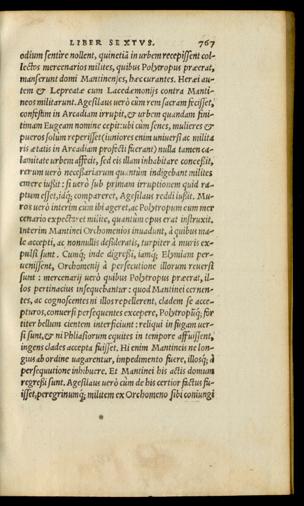 LIBER SEXTVS. 767
odium sentire nollent, quinetiã in urbem recepissent col-
lectos mercenarios milites, quibus Polytropus præerat,
manserunt domi Mantinenses, hæc curantes. Heræi au-
tem & Lepreatæ cum Lacedæmonijs contra Manti-
neos militarunt. Agesilaus uerò cùm rem sacram fecisset,
confestim in Arcadiam irrupit, & urbem quandam fini-
timam Eugeam nomine cepit: ubi cùm senes, mulieres &
pueros solum reperisset (iuniores enim uniuersi ac milita
ris ætatis in Arcadiam profecti fuerant) nulla tamen ca-
lamitate urbem affecit, sed eis illam inhabitare concessit,
rerum uerò necessariarum quantùm indigebant milites
emere iussit: si uerò sub primam irruptionem quid ra-
ptum esset, idq́; compareret, Agesilaus reddi iussit. Mu-
ros uerò interim cùm ibi ageret, ac Polytropum cum mer
cenario expectaret milite, quantùm opus erat instruxit.
Interim Mantinei Orchomenios inuadunt, à quibus ma-
le accepti, ac nonnullis desideratis, turpiter à muris ex-
pulsi sunt. Cumq́; inde digressi, iamq́; Elymiam per-
uenissent, Orchomenij à persecutione illorum reuersi
sunt: mercenarij uerò quibus Polytropus præerat, il-
los pertinacius insequebantur: quod Mantinei cernen-
tes, ac cognoscentes ni illos repellerent, cladem se acce-
pturos, conuersi persequentes excepere, Polytropũq́; for
titer bellum cientem interficiunt: reliqui in fugam uer-
si sunt, & ni Phliasiorum equites in tempore affuissent,
ingens clades accepta fuisset. Hi enim Mantineis ne lon-
gius ab ordine uagarentur, impedimento fuere, illosq́; à
persequutione inhibuere. Et Mantinei his actis domum
regressi sunt. Agesilaus uerò cùm de his certior factus fu-
isset, peregrinumq́; militem ex Orchomeno sibi coniungi